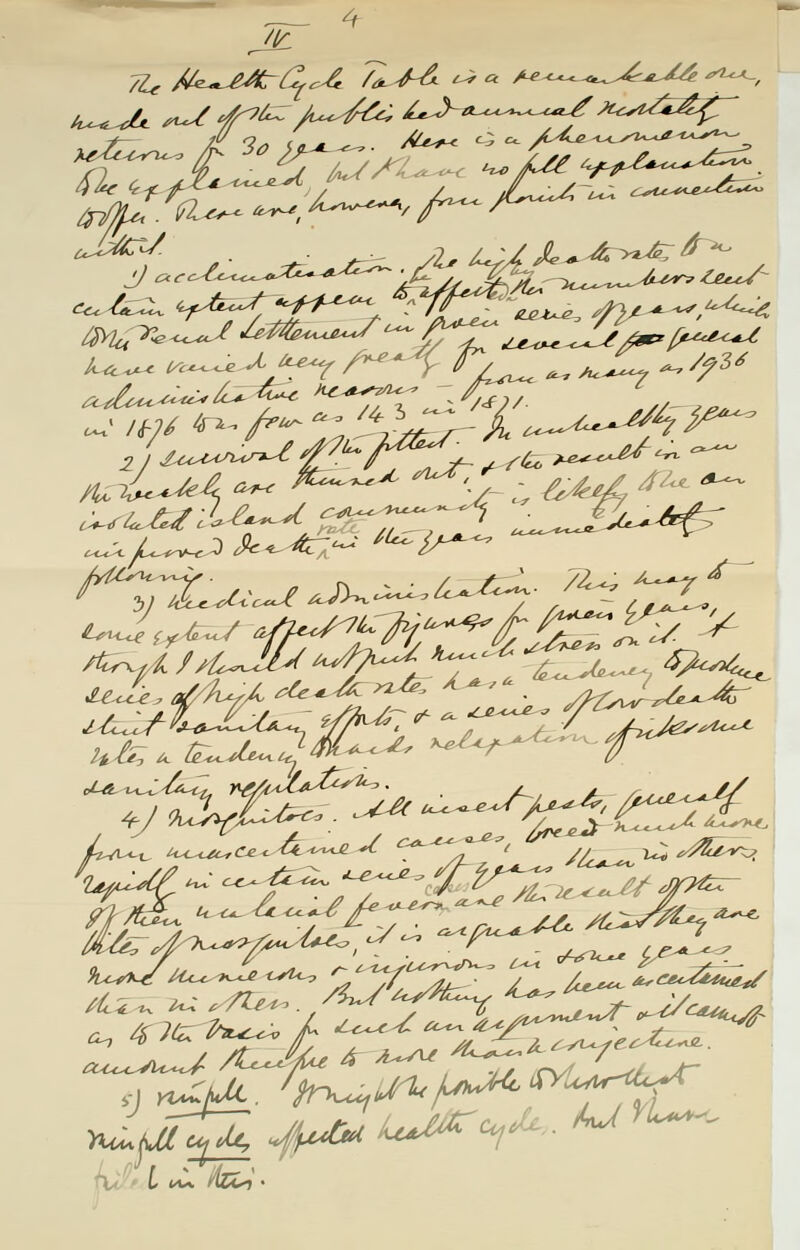 4
IV
The Health Cycle Table is a remarkable one,
made out of the published annual mortality
returns for 30 years. Here is a phenomenon
to be explained, but I have no full explanation
to offer. There are, however, four points in connection
with it.
1) acclimatisation. The high death rates to a
certain extent appear to be affected by the numbers sent
to the Penal Settlement in given series of years, which
have varied very greatly for several general
administrative reasons – from as many as 1936
in 1876 to as few as 143 in 1871.
2) Survival of the fittest. In unhealthy years
the weakly are thinned out, & the result in an
isolated island community is likely to be an
improved death rate in the years immediately
following.
3) Medical administration. This may to
some extent affect the figures for given years,
though I should not put much stress on it. A
series of high death rates has a tendency to produce
strict sanitary efforts, & a series of low death
rates a tendency towards relaxation of irksome
sanitary regulations.
4) Mosquitoes. All insect pests, generally
from unascertained causes, breed much more
rapidly in certain series of years than in others.
If then malarial fever cases are the result of the
bites of mosquitoes, it is arguable that they are
more numerous & injurious in some years
than in others. But nothing has been ascertained
as to the basis for such an argument & it cannot
amount therefore to more than conjecture.
5) rainfall. It might be possible to show that
rainfall cycles affected health cycles. But I have
failed in this.